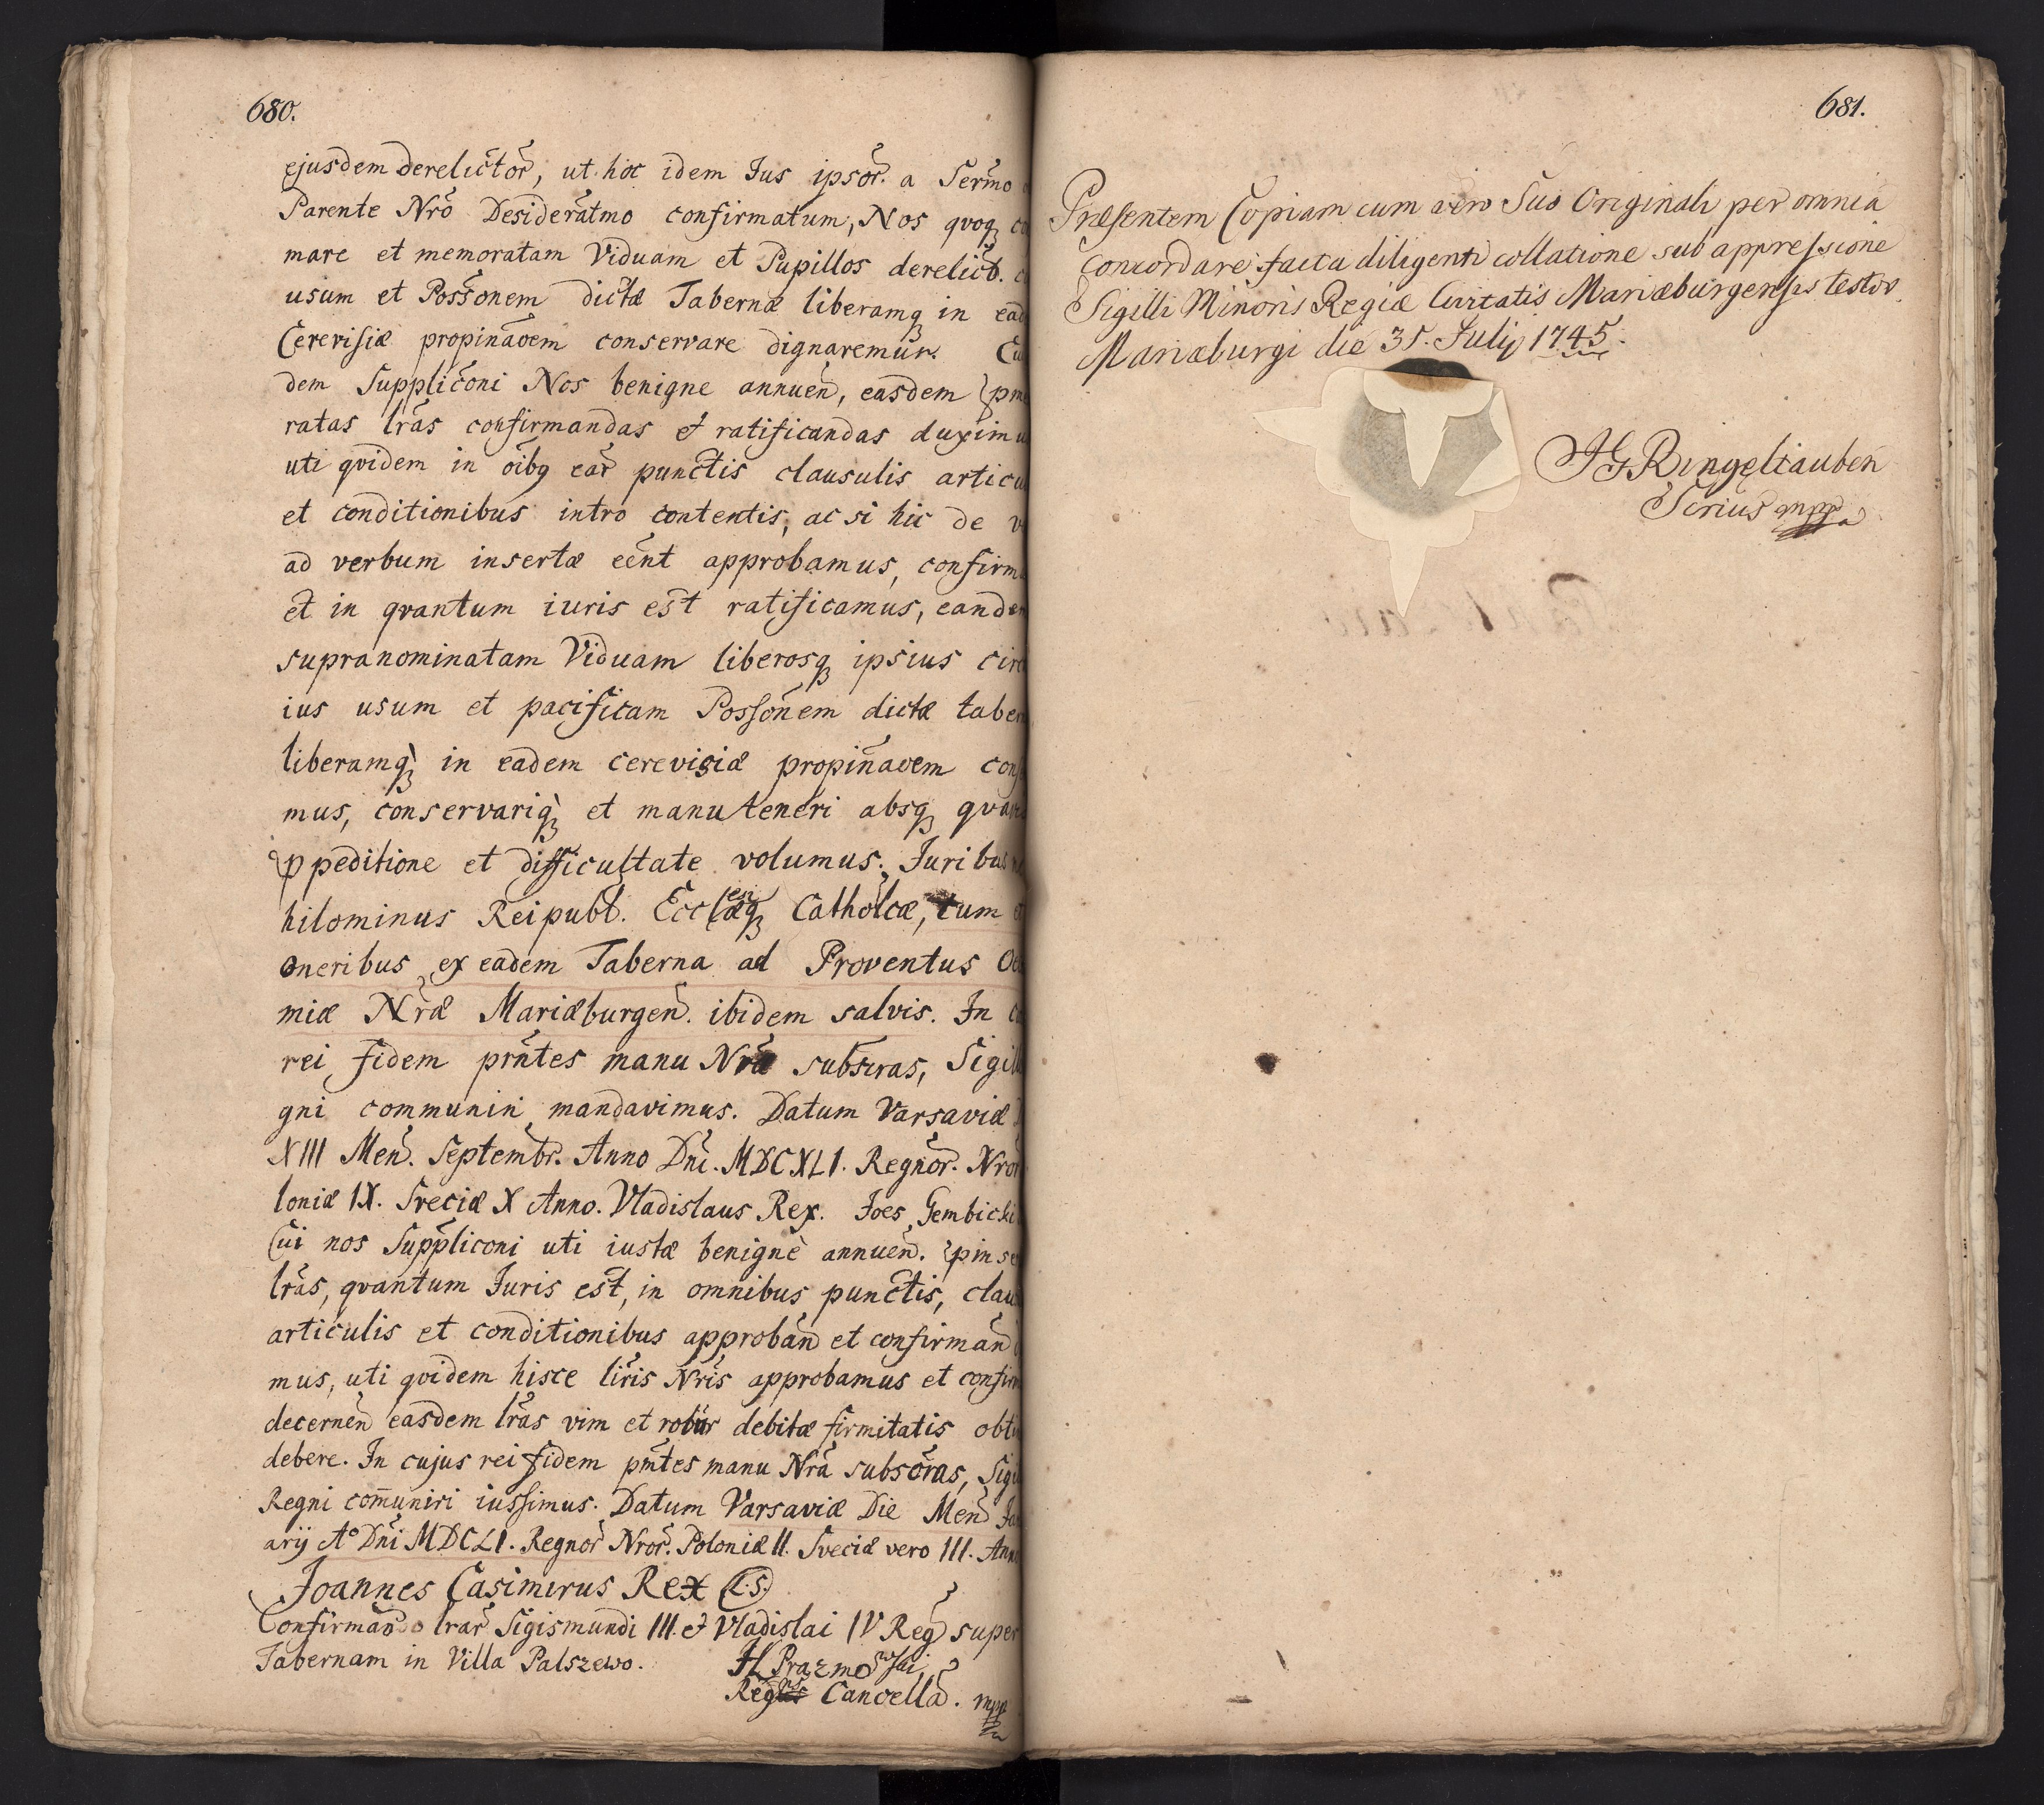 680.
ejusdem derelictor, ut hoc idem Jus ipsor. a Sermo
Parente Nro Desideratmo confirmatum, Nos qvoq
mare et memoratam Viduam et Pupillos derelict.
usum et Possonem dictæ Tabernæ liberamq in ead
Cerevisiæ propinaõem conservare dignaremur.
dem Suppliconi Nos benigne annuen, easdem pm
ratas lras confirmandas et ratificandas duxim
uti qvidem in oibq ear punctis clausulis articu
et conditionibus intro contentis, ac si hic de v
ad verbum insertæ eent approbamus, confirm
et in qvantum iuris est ratificamus, eandem
supranominatam Viduam liberosq ipsius cir
ius usum et pacificam Possonem dictæ taber
liberamq in eadem cerevisiæ propinaõem cons
mus, conservariq et manuteneri absq qvavis
ppeditione et difficultate volumus. Juribus
hilominus Reipubl. Ecclesiæq Catholcæ, tum
oneribus ex eadem Taberna ad Proventus Oe
miæ Nræ Mariæburgen. ibidem salvis. In
rei fidem prntes manu Nra subscras, Sigil
gni communiri mandavimus. Datum Varsaviæ
XIII Men. Septembr. Anno Dni. MDCXLI. Regnor. Nror
loniæ IX. Sveciæ X Anno. Vladislaus Rex. Joes Gembicki
Cui nos Suppliconi uti iustæ benignè annuen. pinse
lras, qvantum Juris est, in omnibus punctis, clau
articulis et conditionibus approban et confirman
mus, uti qvidem hisce liris Nris approbamus et confir
decernen easdem lras vim et robur debitæ firmitatis obti
debere. In cujus rei fidem pntes manu Nra subscras, Sigil
Regni comuniri iussimus. Datum Varsaviæ Die Men Ja
arij Aº Dni MDCLI. Regnor Nror. Poloniæ II. Sveciæ vero III. Anno
Joannes Casimirus Rex (L.S.)
Confirmao lrar Sigismundi III. et Vladislai IV Reg super
Tabernam in Villa Palszewo. Prazmowski
Regens Cancella. mpp
681.
Præsentem Copiam cum vero Suo Originali per omnia
concordare facta diligenti collatione sub appressione
Sigilli Minoris Regiæ Civitatis Mariæburgensis testor.
Mariæburgi die 31. Julij 1745.
Ringeltauben
Scrius mppa